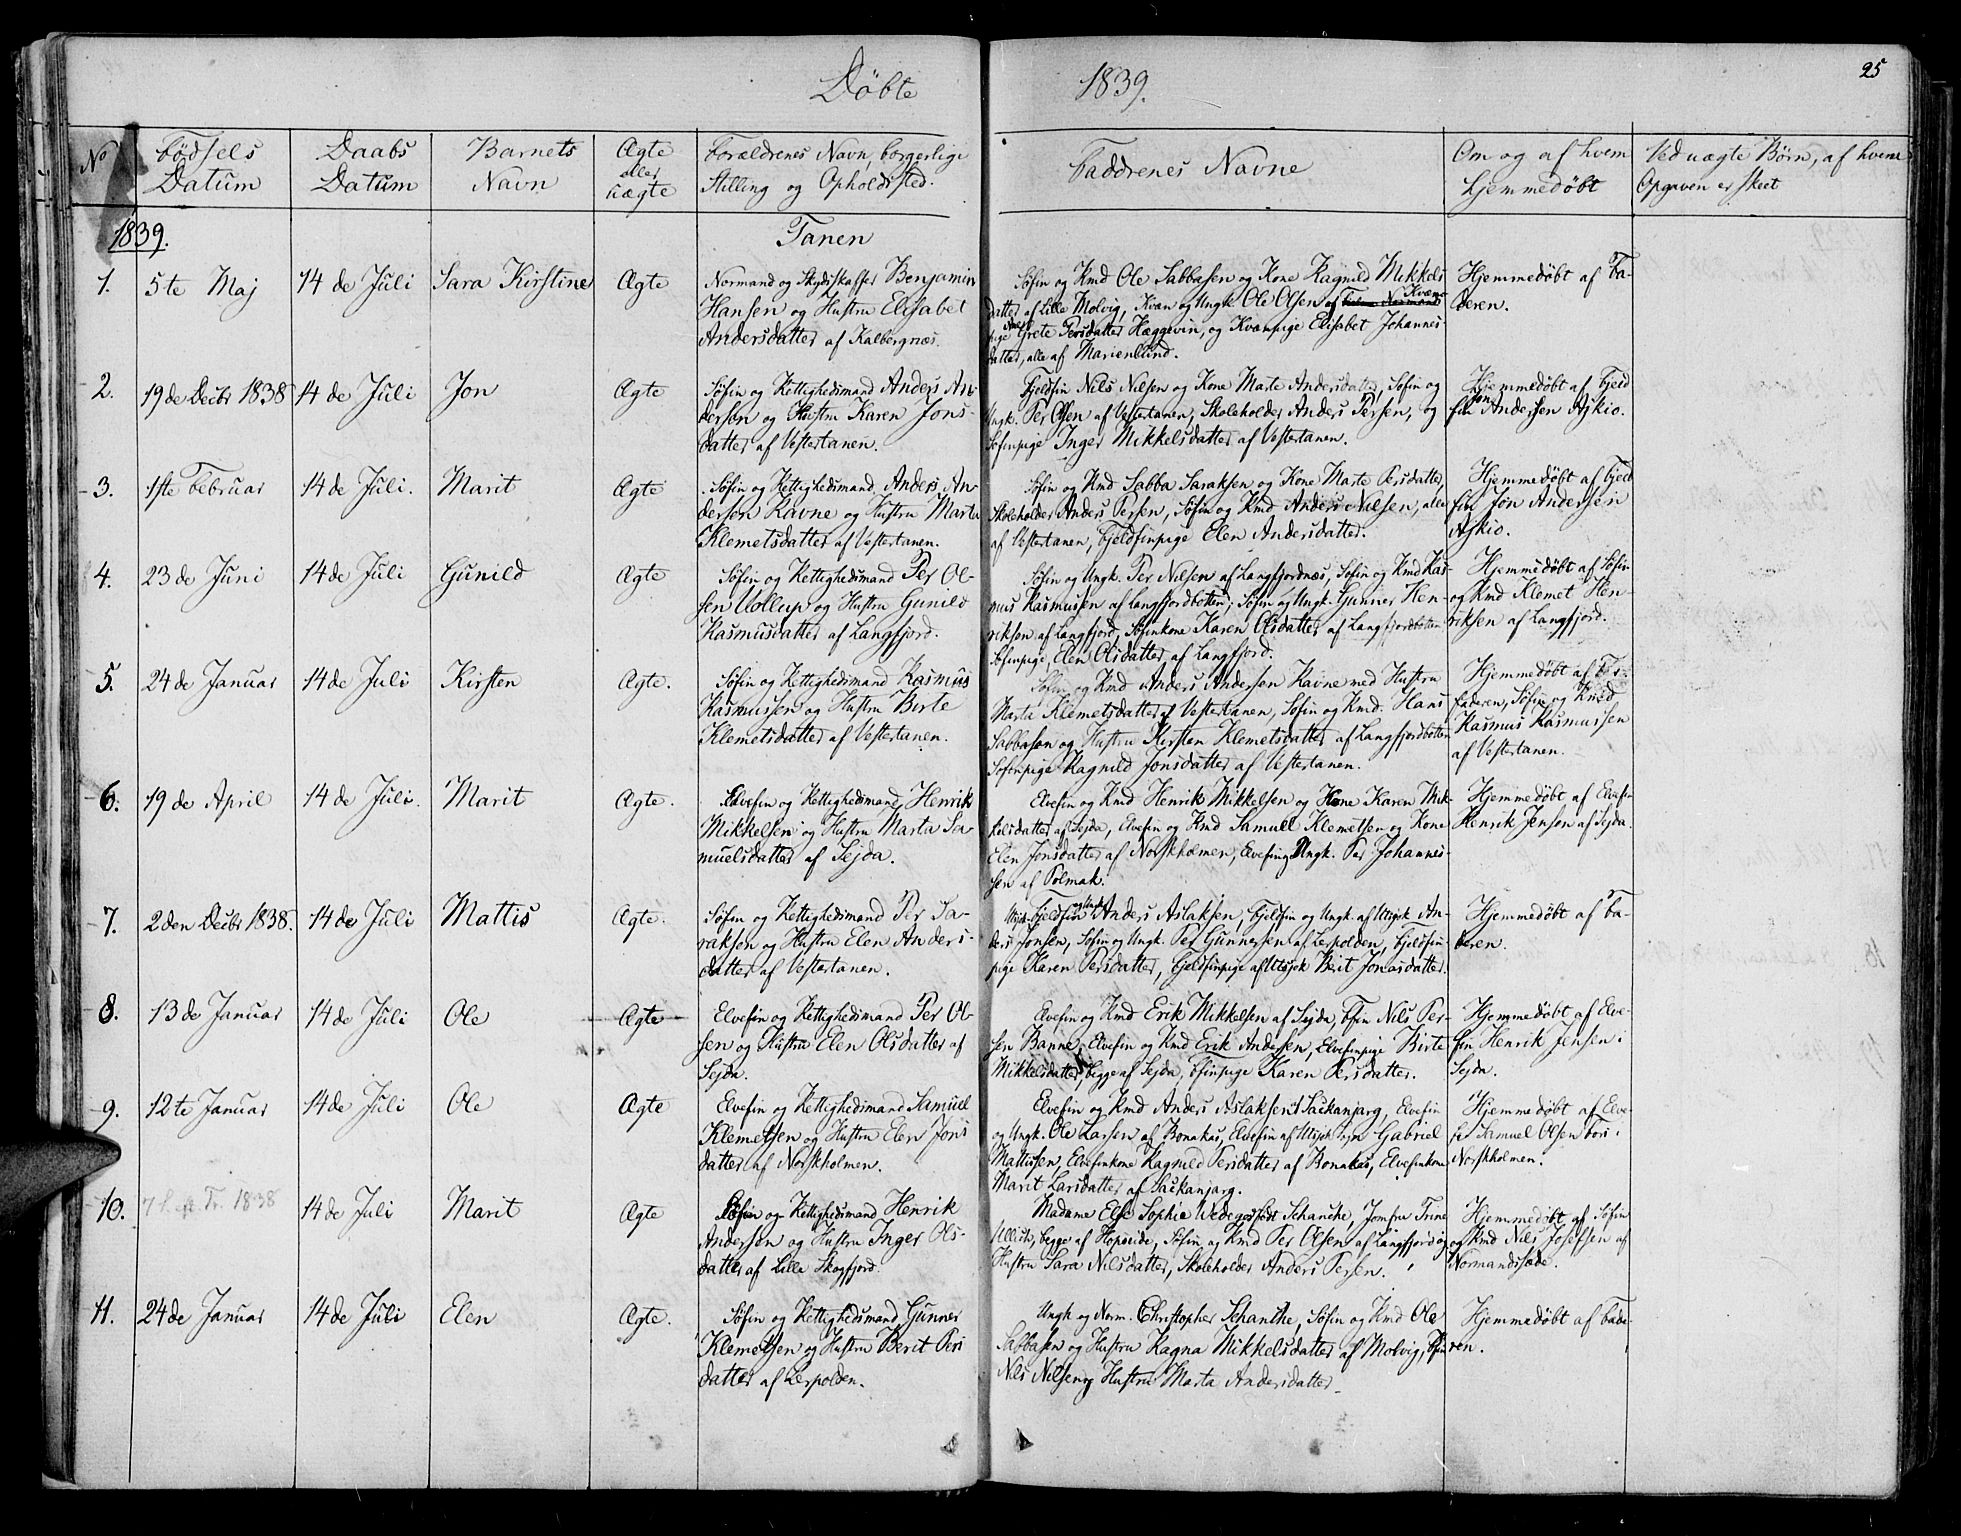 Döbte 1839.
25
No
Födsels Datum
Daabs Datum
Barnets Navn
Ægte eller uægte
Forældrenes Navn, borgerlige Stilling og Opholdssted.
Faddrenes Navne
Om og af hvem hjemmedøbt
Ved uægte Børn, af hvem Opgaven er skeet
1839.
Tanen
1. 5te Maj 14de Juli Sara Kirstine Ægte
Normand og Skydsskaffer Benjamin
Hansen og Hustru Elisabet
Andersdatter af Kalbergnæs.
Søfin og Rmd Ole Sabbasen og Kone Ragnild Mikkels
datter af Lille Molvig, Kvæn og Ungk Ole Olsen af Kvæn
pige Grete Persdatter Hæggevin, og Kvænpige Elisabet Johannes-
datter, alle af Marienlund.
Hjemmedøbt af Fa-
deren.
2. 19de Decbr 1838 14de Juli Jon Ægte
Søfin og Rettighedsmand Anders An-
dersen og Hustru Karen Jons-
datter af Vestertanen.
Fjeldfin Nils Nilsen og Kone Marte Andersdatter, Søfin og
Ungk. Per Olsen af Vestertanen, Skoleholder Anders Persen, og
Søfinpige Inger Mikkelsdatter af Vestertanen.
Hjemmedøbt af Fjeld
fin Jon Andersen Ajkio.
3. 1ste Februar 14de Juli. Marit Ægte
Søfin og Rettighedsmand Anders An-
dersen Ravne og Hustru Marta
Klemetsdatter af Vestertanen.
Søfin og Rmd Sabba Saraksen og Kone Marte Persdatter,
Skoleholder Anders Persen, Søfin og Rmd Anders Nilsen, alle
af Vestertanen, Fjeldfinpige Elen Andersdatter.
Hjemmedøbt af Fjeld
fin Jon Andersen
Ajkio.
4. 23de Juni 14de Juli Gunild Ægte
Søfin og Rettighedsmand Per Ol-
sen Uollup og Hustru Gunild
Rasmusdatter af Langfjord.
Søfin og Ungk. Per Nilsen af Langfjordnæs, Søfin og Rmd Ras-
mus Rasmussen af Langfjordbotten, Søfin og Ungk. Gunner Hen-
riksen af Langfjord, Søfinkone Karen Olsdatter af Langfjordbotten
Søfinpige, Elen Olsdatter af Langfjord.
Hjemmedøbt af Søfin
og Rmd Klemet Hen-
riksen af Langfjord.
5. 24de Januar 14de Juli Kirsten Ægte.
Søfin og Rettighedsmand Rasmus
Rasmussen og Hustru Birte
Klemetsdatter af Vestertanen.
Søfin og Rmd Anders Andersen Ravne med Hustru
Marta Klemetsdatter af Vestertanen, Søfin og Rmd. Hans
Sabbasen og Hustru Kirsten Klemetsdatter af Langfjordbotten
Søfinpige Ragnild Jonsdatter af Vestertanen.
Hjemmedøbt af Far-
faderen, Søfin og Rmd
Rasmus Rasmussen
af Vestertanen.
6. 19de April 14de Juli. Marit Ægte.
Elvefin og Rettighedsmand Henrik
Mikkelsen og Hustru Marta Sa-
muelsdatter af Sejda.
Elvefin og Rmd Henrik Mikkelsen og Kone Karen Mik-
kelsdatter af Sejda, Elvefin og Rmd Samuel Klemetsen og Kone
Elen Jonsdatter af Norskholmen, Elvefin og Ungk. Per Johannes-
sen af Polmak.
Hjemmedøbt af Elvefin
Henrik Jensen af Sejda.
7. 2den Decbr 1838. 14de Juli Mattis Ægte.
Søfin og Rettighedsmand Per Sa-
raksen og Hustru Elen Anders-
datter af Vestertanen.
Fjeldfin og Ungk Anders Aslaksen, Fjeldfin og Ungk. af Utsjok An-
ders Jonsen, Søfin og Ungk. Per Gunnersen af Lerpolden, Fjeldfin-
pige Karen Persdatter, Fjeldfinpige af Utsjok Berit Jonasdatter.
Hjemmedøbt af Fa-
deren.
8. 13de Januar 14de Juli Ole Ægte
Elvefin og Rettighedsmand Per Ol-
sen og Hustru Elen Olsdatter af
Sejda.
Elvefin og Rmd Erik Mikkelsen af Sejda, Ffin Nils Per-
sen Banne, Elvefin og Rmd Erik Andersen, Elvefinpige Birte
Mikkelsdatter, begge af Sejda, Ffinpige Karen Persdatter.
Hjemmedøbt af Elve-
fin Henrik Jensen i
Sejda.
9. 12te Januar 14de Juli Ole Ægte
Elvefin og Rettighedsmand Samuel
Klemetsen og Hustru Elen Jons
datter af Norskholmen.
Elvefin og Rmd Anders Aslaksen i Sackanjarg, Elvefin
og Ungk. Ole Larsen af Bonakas, Elvefin af Utsjok Gabriel
Mattisen, Elvefinkone Ragnild Persdatter af Bonakas, Elvefinkone
Marit Larsdatter af Sackanjarg.
Hjemmedøbt af Elve-
fin Samuel Olsen i
Norskholmen.
10. 7 S. eft Tr. 1838 14de Juli Marit Ægte
Søfin og Rettighedsmand Henrik
Andersen og Hustru Inger Ols-
datter af Lille Skogfjord.
Madame Else Sophie Wedege født Schanche, Jomfru Trine
Ullich, begge af Hopseide, Søfin og Rmd Per Olsen af Langfjord og
Hustru Sara Nilsdatter, Skoleholder Anders Persen.
Hjemmedøbt af Søfin
og Rmd Nils Josefsen af
Normandssæde.
11. 24de Januar 14de Juli Elen Ægte.
Søfin og Rettighedsmand Gunner
Klemetsen og Hustru Berit Pers
datter af Lerpolden.
Ungk og Norm. Christopher Schanche, Søfin og Rmd Ole
Sabbasen og Hustru Ragna Mikkelsdatter af Molvig, Ffin
Nils Nilsen og Hustru Marta Andersdatter.
Hjemmedøbt af Fade-
ren.